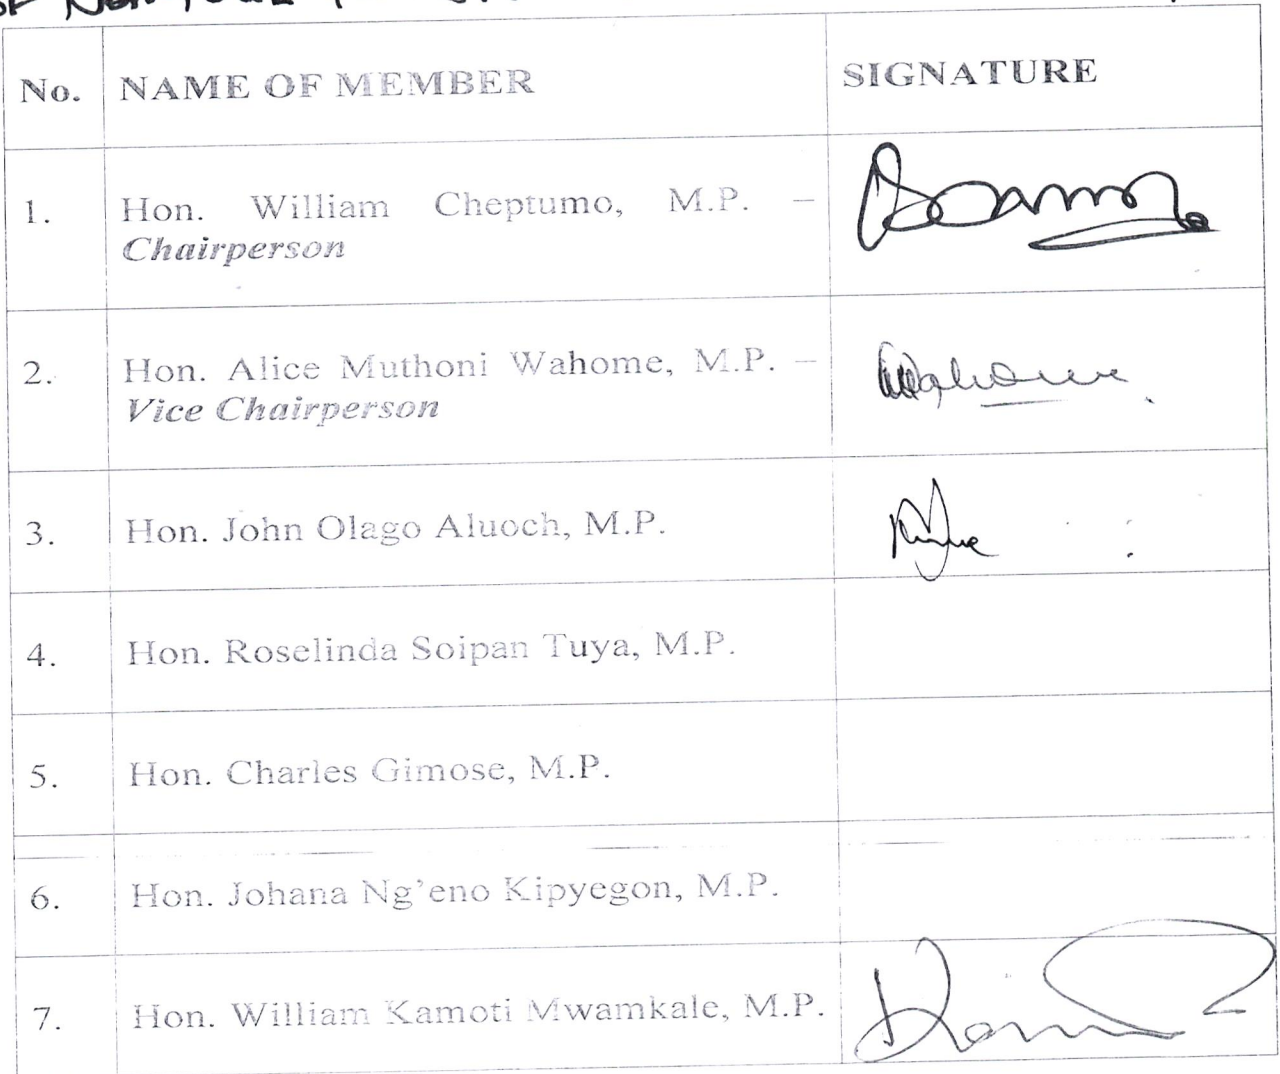 No. NAME OF MEMBER SIGNATURE
1. Hon. William Cheptumo, M.P. –
Chairperson
2. Hon. Alice Muthoni Wahome, M.P. –
Vice Chairperson
Wahome
3. Hon. John Olago Aluoch, M.P.
4. Hon. Roselinda Soipan Tuya, M.P.
5. Hon. Charles Gimose, M.P.
6. Hon. Johana Ng’eno Kipyegon, M.P.
7. Hon. William Kamoti Mwamkale, M.P.